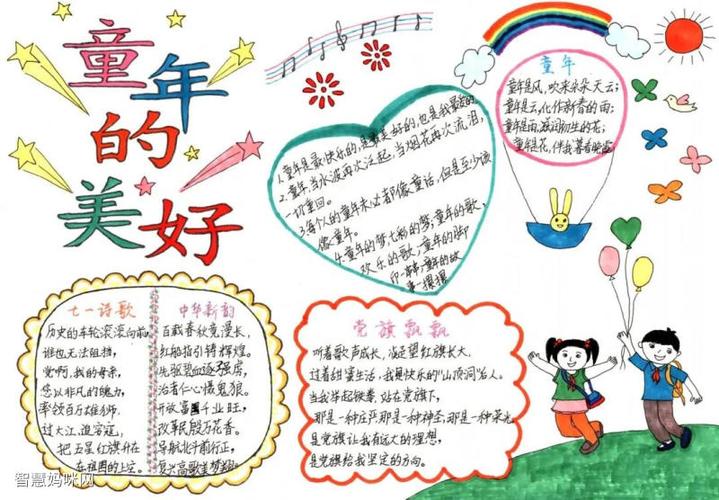 童年的美好
1.童年是最快乐的,是最美好的,也是我最爱的
2.童年,当水波再次泛起,当烟花再次流泪,
一切重回。
3.每个人的童年未必都像童话,但是至少该
像童年。
4.童年的梦,七彩的梦;童年的歌,
欢乐的歌,童年的脚
印一串串,童年的故
事一摞摞
童年
童年是风,吹来朵朵天云;
童年是云,化作新春的雨;
童年是雨,滋润初生的花;
童年是花,伴我暮看晚霞
七一诗歌
历史的车轮滚滚向前,
谁也无法阻挡,
党啊,我的母亲,
您以非凡的魄力,
率领百万雄师,
过大江,迫穷寇,
把五星红旗升在
在祖国的上空。
中华新韵
百载春秋竞漫长,
红船指引铸辉煌。
先驱碧血逐强虏,
治者仁心慑鬼狼。
开放富国千业旺,
改革民殷万花香。
导航北斗前行正,
复兴高歌美梦
党旗飘飘
听着歌声成长,凝望红旗长大,
过着甜蜜生活,我具快乐的"山顶洞"名人。
当我举起铁拳,站在党旗下,
那是一种庄严,那是一种神圣,那是一种荣光
是党旗让我有远大的理想,
是党旗给我坚定的方向。
智慧妈咪网